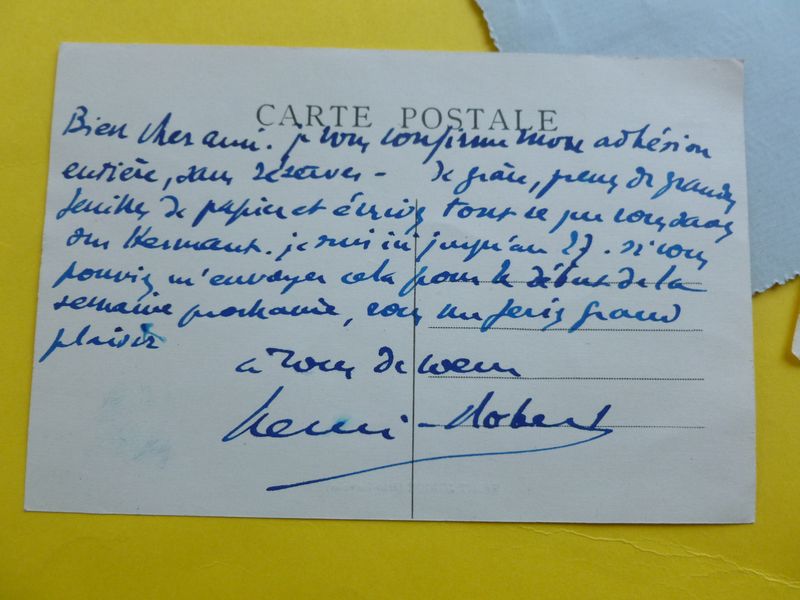 CARTE POSTALE
Bien cher ami. je vous confirme mon adhésion
entière, sans réserves - de grâce, prenez de grandes
feuilles de papier et écrivez tout ce que vous savez
sur Hermant. je suis ici jusqu'au 27. si vous
pouviez m'envoyer cela pour le début de la
semaine prochaine, vous me feriez grand
plaisir
à vous de coeur
Henri-Robert